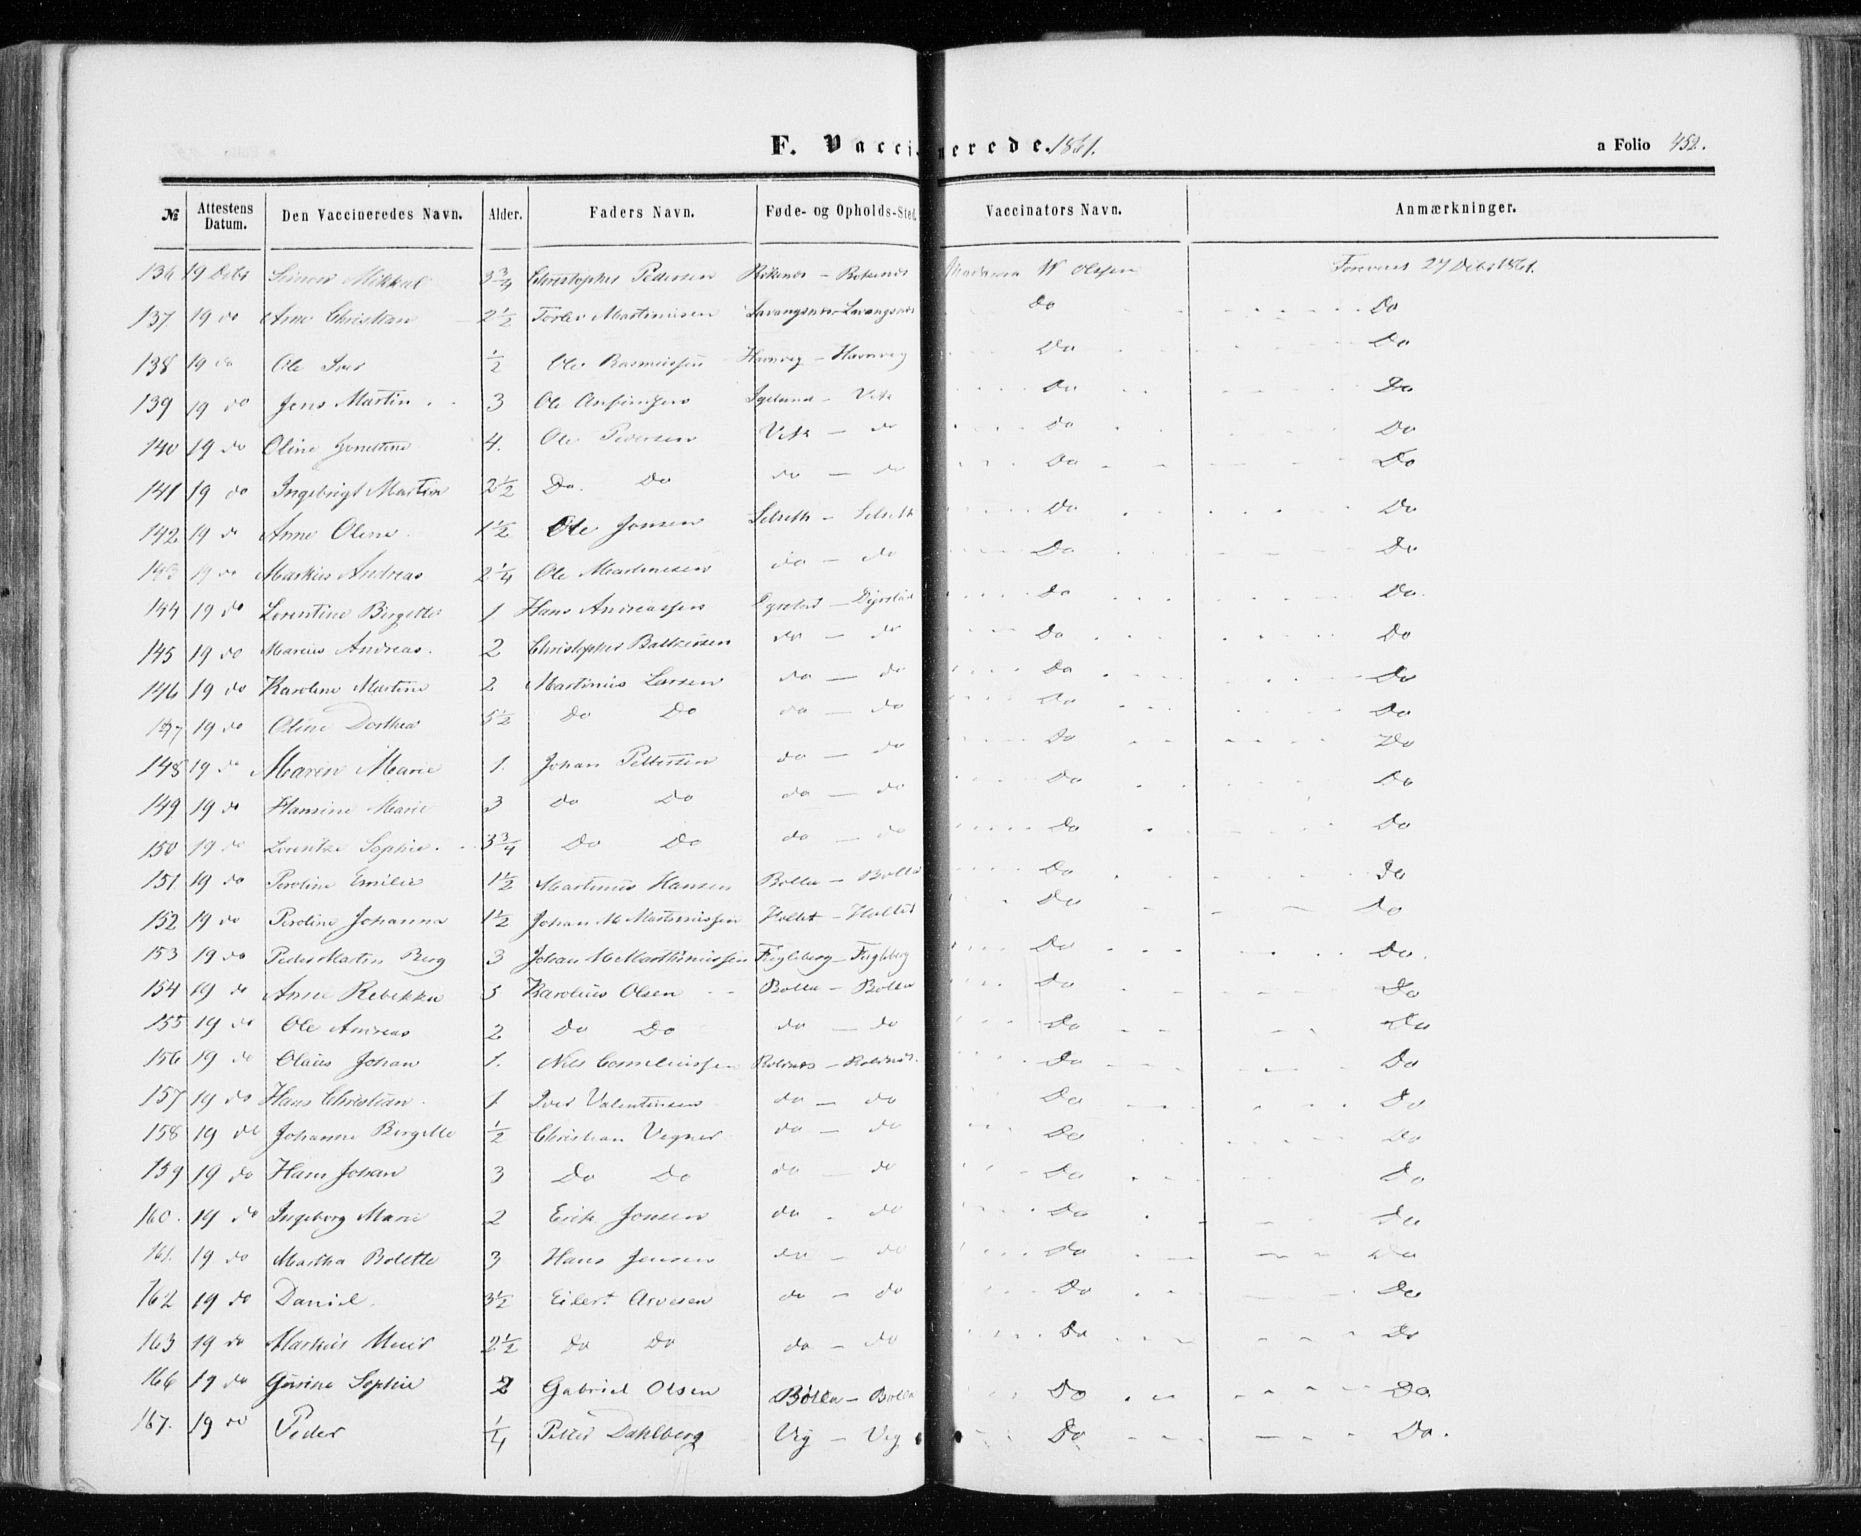 F. Vaccinerede. 1861.
a Folio 452.
№ Attestens Datum. Den Vaccineredes Navn. Alder. Faders Navn. Føde- og Opholds-Sted. Vaccinators Navn. Anmærkninger.
136 19 Debr Mikkal 3 3/4 Christopher Pedersen Rokenes - Rokenes Madama W Olsen Foreviist 27 Debr 1861.
137 19 do Arne Christian 2 1/2 Torlev Martinusen Lavangsnes - Lavangsnes Do Do
138 19 do Ole Iver 1/2 Ole Rasmussen Havnvig - Havnvig Do Do
139 19 do Jens Martin 3 Ole Anfinsen - Vik Do Do
140 19 do Oline 4. Ole Pedersen Vik - do Do Do
141 19 do Ingebrigt Martin 2 1/2 Do. Do do - do Do Do
142 19 do Anne Oline. 1 1/2 Ole Jonsen Selseth - Selseth Do Do
143 19 do Markus Andreas 2 1/4 Ole Martinusen do - do Do Do
144 19 do Lorentine Birgette 1. Hans Andreassen Dyrstad - Dyrstad Do Do.
145 19 do Marius Andreas. 2 Christopher Baltzersen do - do Do Do
146 19 do Karoline Martine 2 Martinus Larsen do - do Do Do
147 19 do Oline Dorthea 5 1/2 Do Do do - do Do Do
148 19 do Maren Marie 1. Johan Pettersen do - do Do Do
149 19 do Hansine Marie 3 Do Do do - do Do Do
150 19 do Lorentze Sophie. 3 3/4 Do Do do - do Do Do
151 19 do Peroline Emilie 1 1/2 Martinus Hansen Bolla - Bolla Do Do
152 19 do Peroline Johanna 1 1/2 Johan M Martinussen Do Do
153 19 do Peder Martin Berg 3 Johan M Marthinussen Fugleberg - Fugleberg Do Do.
154 19 do Anne Rebekka 5 Karolius Olsen Bolla - Bolla Do Do
155 19 do Ole Andreas 2 Do Do do - do Do Do
156 19 do Olaus Johan 1. Nils Corneliussen Roldnes - Roldnes. Do Do
157 19 do Hans Christian. 1 Iver Valentinsen do - do Do Do
158 19 do Johanne Birgette 1/2 Christian Vegner do - do Do Do
159 19 do Hans Johan 3 Do Do do - do Do Do
160. 19 do Ingeborg Marie 2 Erik Jonsen do - do Do Do
161. 19 do Martha Bolette 3 Hans Jensen do - do Do Do
162 19 do Daniel. 3 1/2 Eilert Arvesen do - do Do Do
163 19 do Markus 2 1/2 Do Do do - do Do Do
166 19 do Gurine Sophie 2 Gabriel Olsen Bolla - Bolla Do Do.
167. 19 do Peder 1/4 Petter Dahlberg Vig - Vig Do Do.